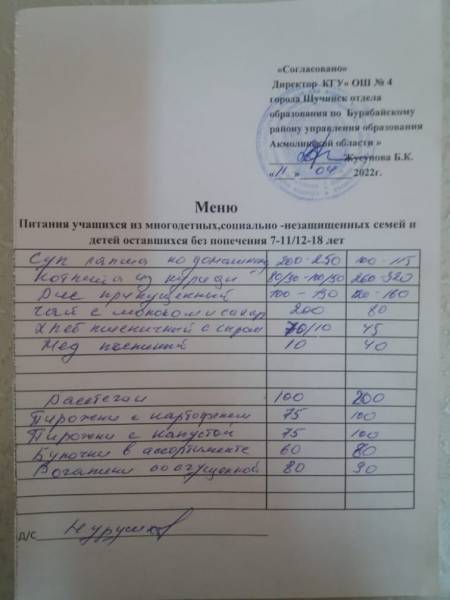 «Согласовано»
Директор КГУ« ОШ № 4
города Щучинск отдела
образования по Бурабайскому
району управления образования
Акмолинской области »
Жусупова Б.К.
« 11 » 04 2022г.
Меню
Питания учащихся из многодетных,социально -незащищенных семей и
детей оставшихся без попечения 7-11/12-18 лет
Суп лапша по домашнему 200-250 100-115
Котлета из курицы 260-320
Рис припущенный 100-150 120-160
Чай с молоком и сахар 200 80
Хлеб пшеничный с сыром 70/10 45
Мед 10 40
Расстегаи 100 200
Пирожки с картофелем 75 100
Пирожки с капустой 75 100
Булочки в ассортименте 60 80
Рогалики со сгущенкой 80 90
д/с